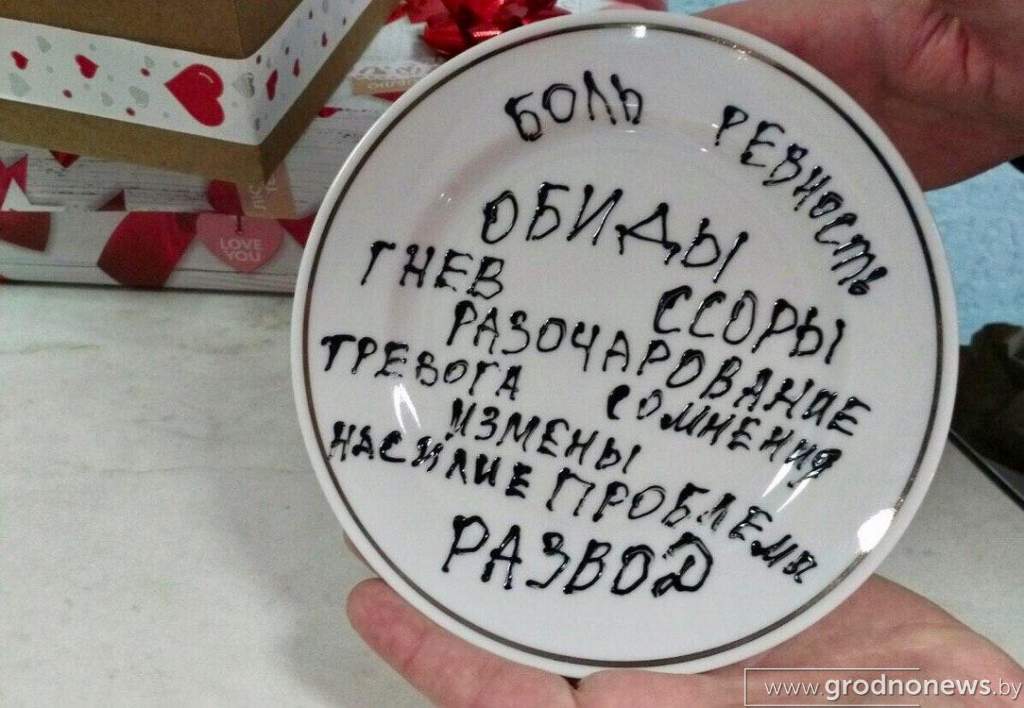 БОЛЬ
РЕВНОСТЬ
ОБИДЫ
ГНЕВ
ССОРЫ
РАЗОЧАРОВАНИЕ
ТРЕВОГА
СОМНЕНИЯ
ИЗМЕНЫ
НАСИЛИЕ
ПРОБЛЕМЫ
РАЗВОД
LOVE
YOU
www.grodnonews.by